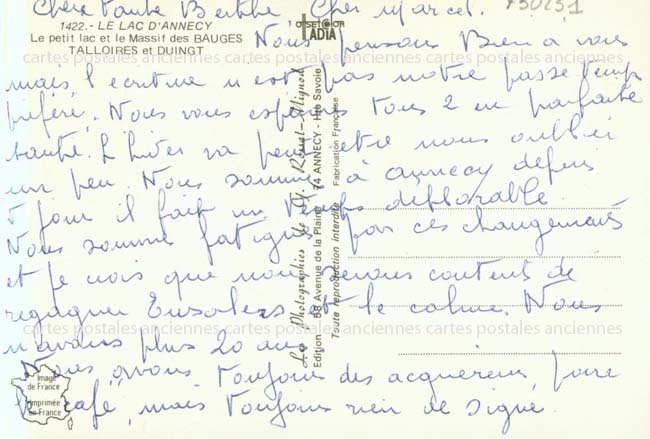 Chère Tante Berthe Cher Marcel. 730251
1422.- LE LAC D'ANNECY
Le petit lac et le Massif des BAUGES
TALLOIRES et DUINGT
Nous pensons Bien à vous
mais l'écriture n'est pas notre passe temps
préféré. Nous vous espérons tous 2 en parfaite
santé. L'hiver va peut etre nous oublier
un peu. Nous sommes à annecy depuis
jour il fait un temps déplorable.
Nous somme fatigués par ces changements
et je crois que nous serons content de
regagner et le calme. Nous
n'avons plus 20 ans
Nous avons toujours des acquéreurs, pour
le café, mais toujours rien de signé.
Les Photographies de
Edition 58 Avenue de la Plaine 74 ANNECY - Hte Savoie
Toute reproduction interdite Fabrication Française
OFFSET COLOR
ADIA
Image
de France
Imprimée
en France
cartes postales anciennes cartes postales anciennes cartes postales anciennes